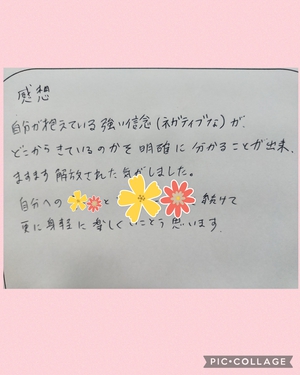 感想
自分が抱えている強い信念(ネガティブな)が、
どこからきているのかを明確に分かることが出来、
ますます解放された気がしました。
自分への と 続けて
更に身軽に楽しくいこうと思います。
PIC•COLLAGE